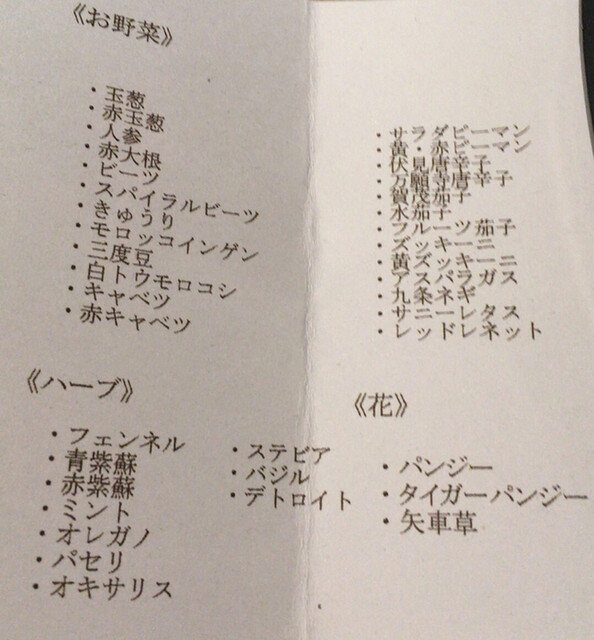 《お野菜》
・玉葱
・赤玉葱
・人参
・赤大根
・ビーツ
・スパイラルビーツ
・きゅうり
・モロッコインゲン
・三度豆
・白トウモロコシ
・キャベツ
・赤キャベツ
・サラダピーマン
・黄・赤ピーマン
・伏見唐辛子
・万願寺唐辛子
・賀茂茄子
・水茄子
・フルーツ茄子
・ズッキーニ
・黄ズッキーニ
・アスパラガス
・九条ネギ
・サニーレタス
・レッドレネット
《ハーブ》
・フェンネル
・青紫蘇
・赤紫蘇
・ミント
・オレガノ
・パセリ
・オキサリス
・ステビア
・バジル
・デトロイト
《花》
・パンジー
・タイガーパンジー
・矢車草